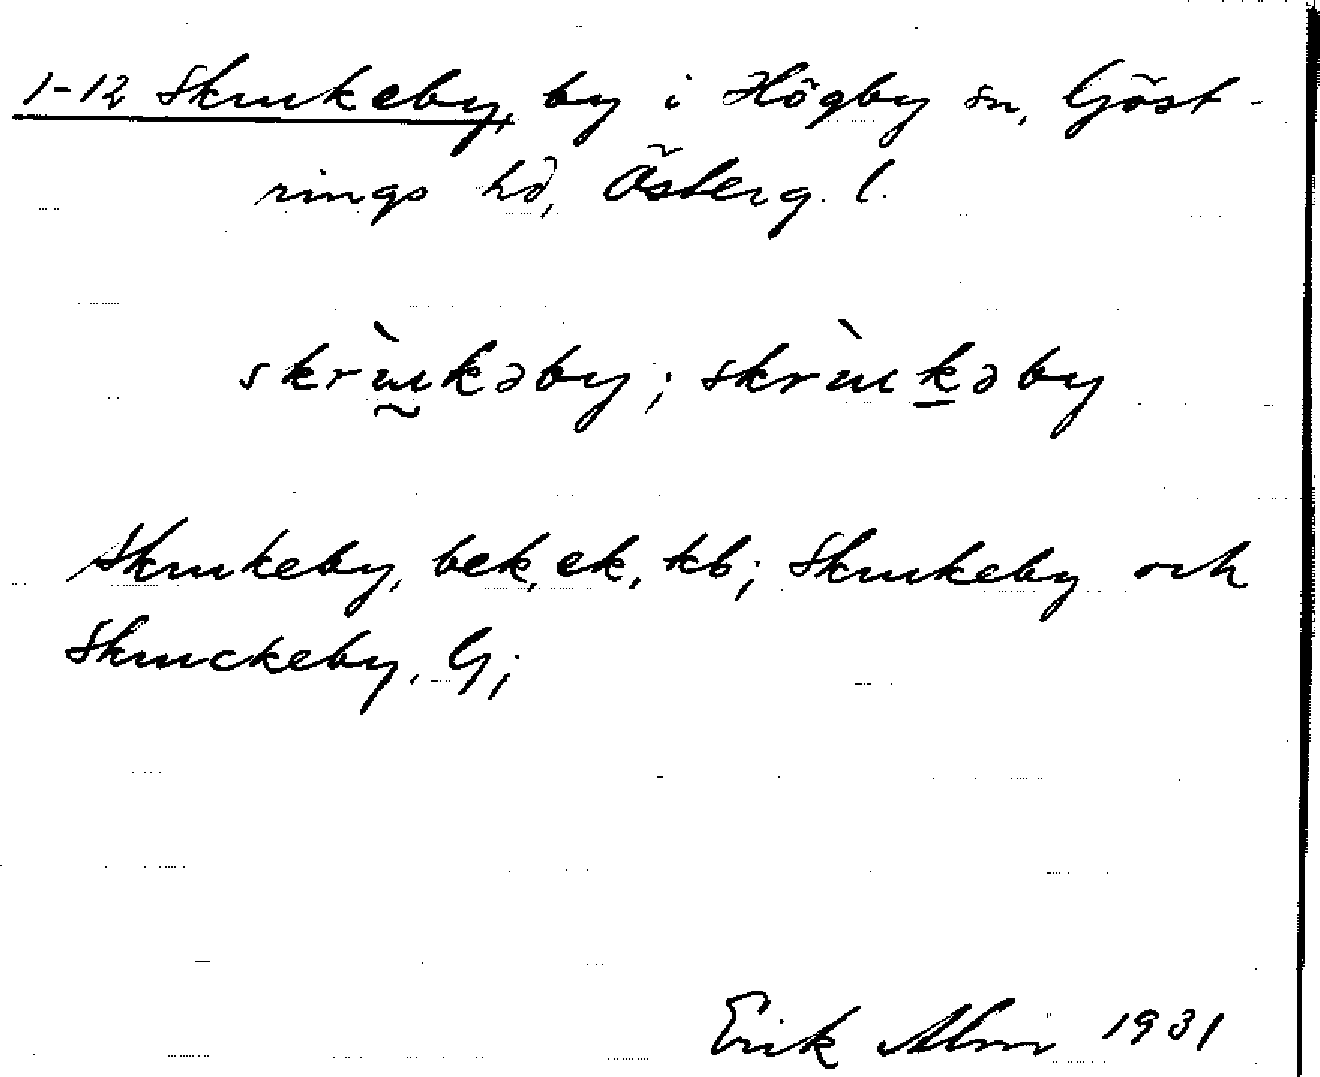 1-12 Skrukeby, by i Högby sn, Göst-
rings hd, Österg. l.
skrùkəby; skrùkəby
Skrukeby, bek, ek, kb; Skrukeby och
Skruckeby, G;
Erik Alm 1931